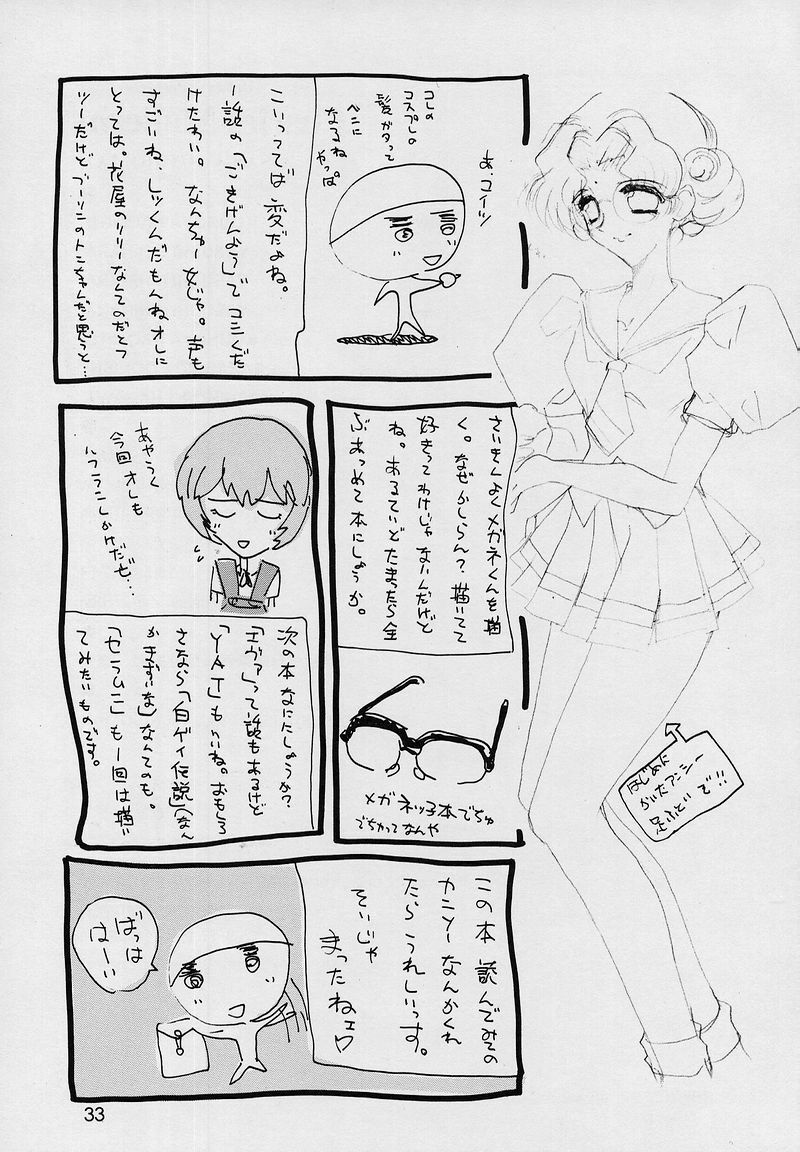 あ、コイツ
コレの
コスプレの
髪がタって
ベニに
なるね
やっぱ
こいってば変だよね。
一話の「ごきげんよう」でコミくだ
けたわい。なんちゅー女じゃ。声も
すごいね、しッくんだもんねオレに
とっては。花屋のリリーなんてのだとフ
ツーだけどブーリンのトンちゃんだと思うと…
さいきんよくメガネくんを描
く。なぜかしらん?描いてて
好きってわけじゃないんだけど
ね。あるていどたまったら全
ぶあつめて本にしようか。
メガネッ子本でちゅ
でちかってなんや
あやうく
今回オレも
ハラミしかけだぜ…
次の本なににしようか?
「エヴァ」って話もあるけど
「YAT」もいいね。おもしろ
さなら「白ゲイ伝説」(なん
かまずいな)なんてのも。
「セラムニ」も一回は描い
てみたいものです。
はじめに
かいたアンシー
足ふとい で!!
この本 読んでみての
カンソーなんかくれ
たら うれしいっす。
そいじゃ
まったねェ
ばっは
はーい
33